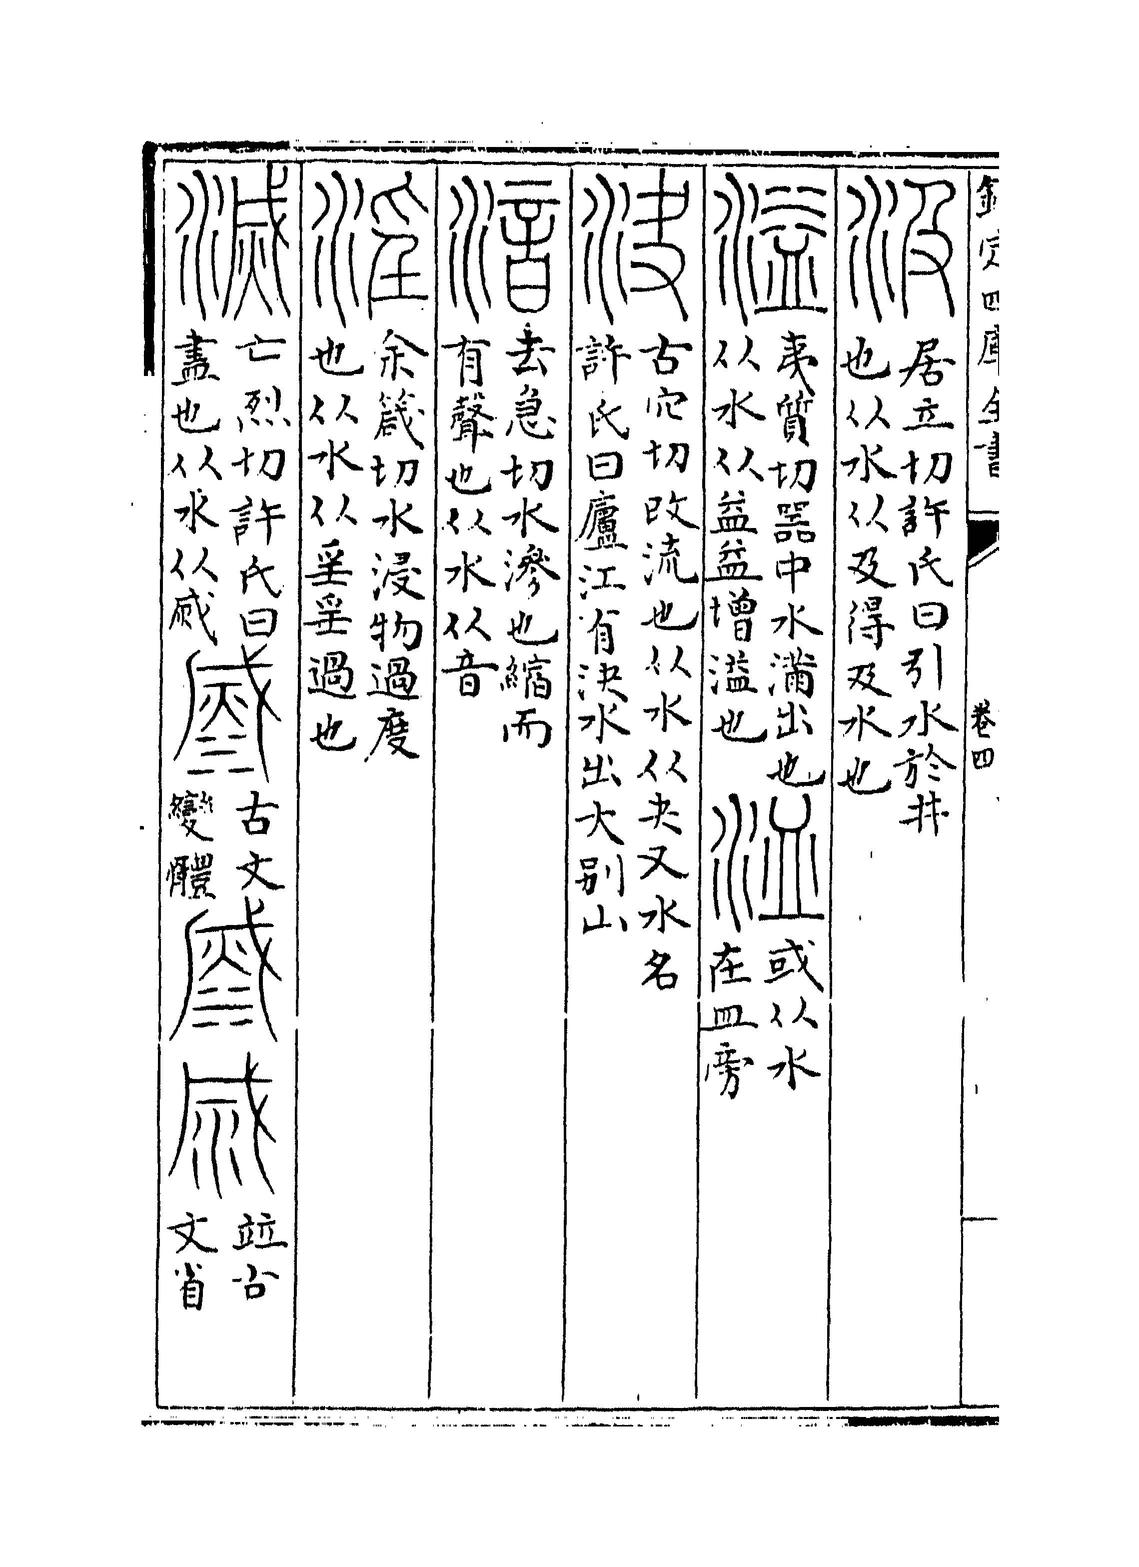 欽定四庫全書
卷四
汲
居立切許氏曰引水於井
也从水从及得及水也
溢
夷質切器中水滿出也
从水从益益增溢也
或从水
在皿旁
決
古穴切改流也从水从夬又水名
許氏曰廬江有決水出大别山
湆
去急切水滲也縮而
有聲也从水从音
淫
余箴切水浸物過度
也从水从㸒㸒過也
滅
亡烈切許氏曰
盡也从水从烕
古文
變體
竝古
文省